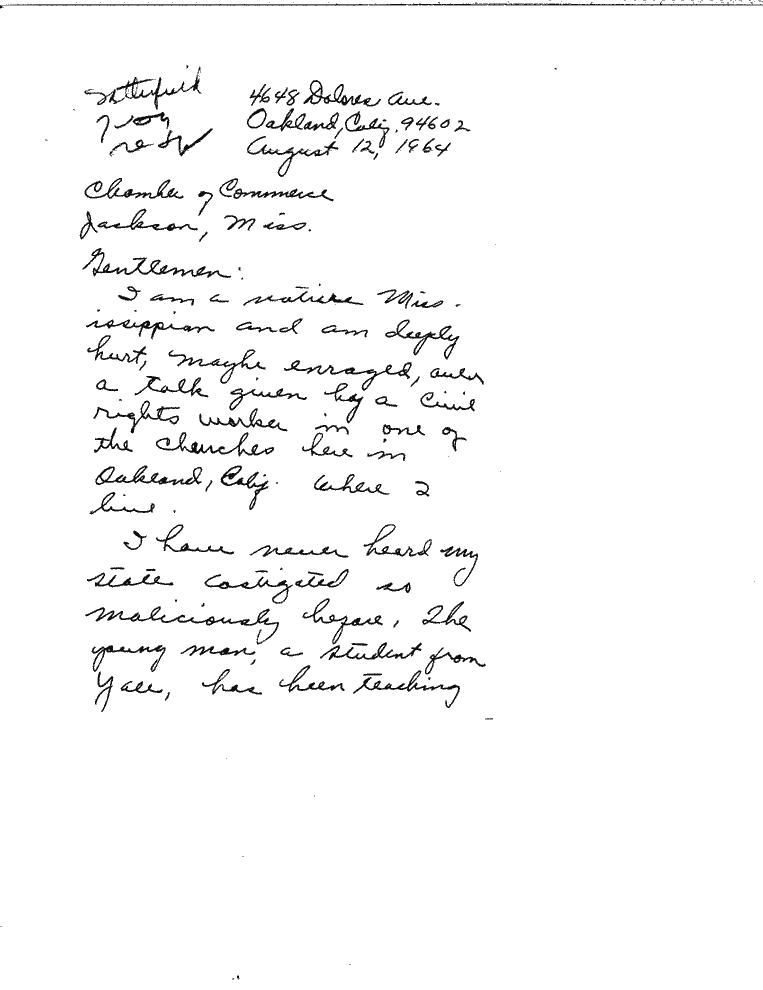 Satterfield
4648 Dolores Ave.
Oakland, Calif. 94602
August 12, 1964
Chamber of Commerce
Jackson, Miss.
Gentlemen:
I am a native Miss-
issippian and am deeply
hurt, maybe enraged, over
a talk given by a Civil
rights worker in one of
the churches here in
Oakland, Calif. where I
live.
I have never heard my
state castigated so
maliciously before. The
young man, a student from
Yale, has been teaching